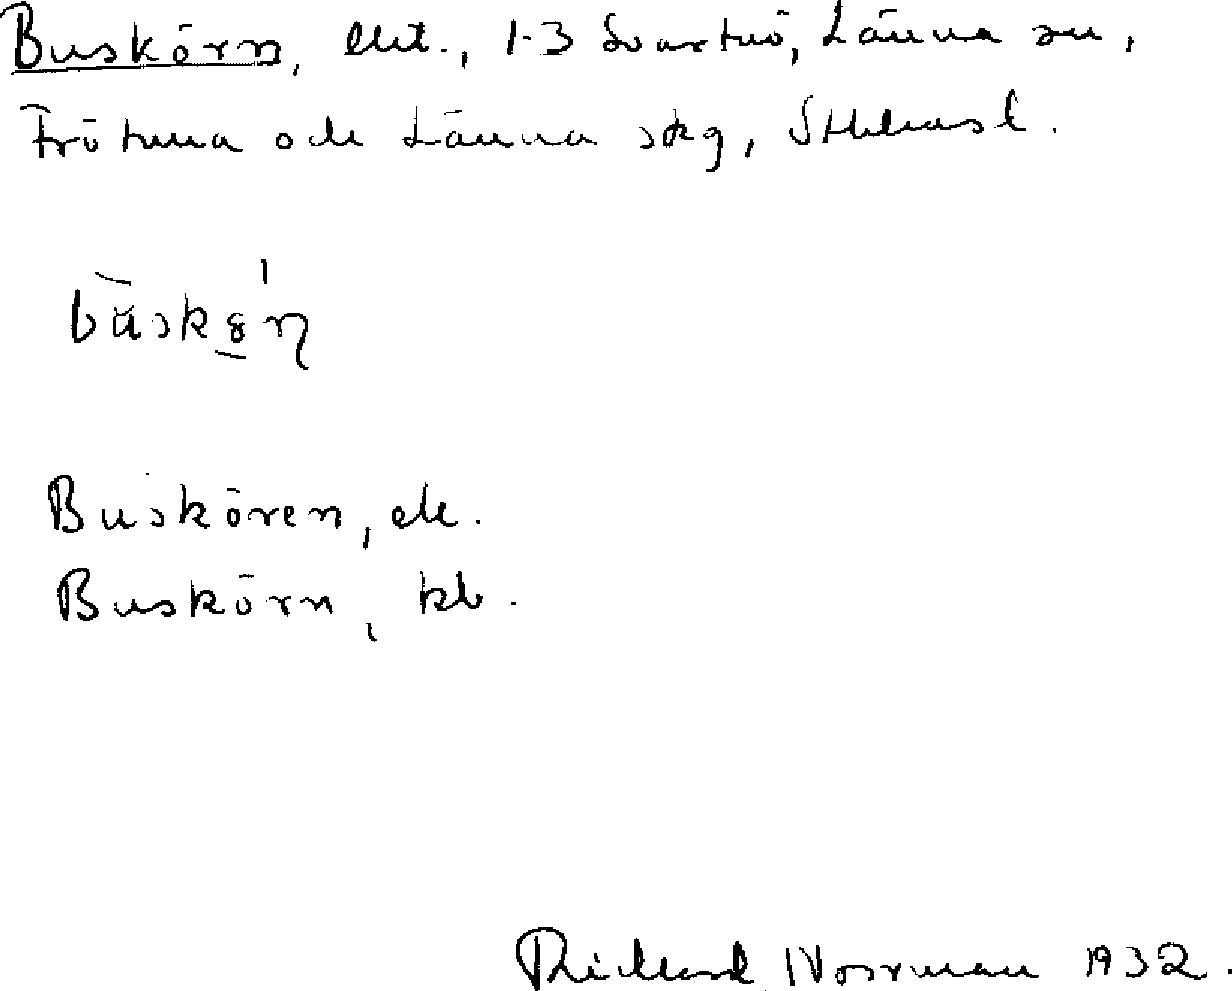 Buskörn, 1-3 Svartnö, Länna sn,
Frötuna och Länna skg, Sthlms l.
Buskören, ek.
Buskörn, kb.
Rickard Norrman 1932.